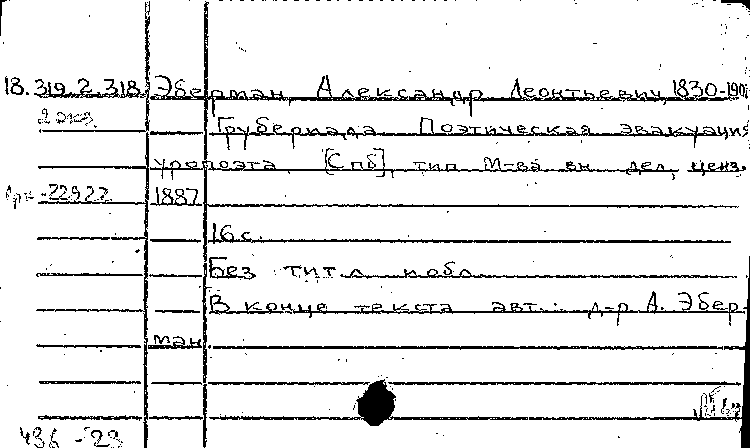 18.319.2.318 Эберман, Александр Леонтьевич, 1830-190
2 экз. Грубериада Поэтическая эвакуация
урепоэта [Спб], тип М-ва вн дел, ценз.
-22922 1887
16 с.
Без тит. л и обл
В конце текста авт.: д-р А. Эбер
ман
436 - 23